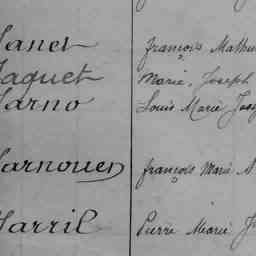 Janet françois
Jaquet Marie, Joseph
Jarno Louis Marie
Jarnouen françois Marie
Jarril Pierre Marie